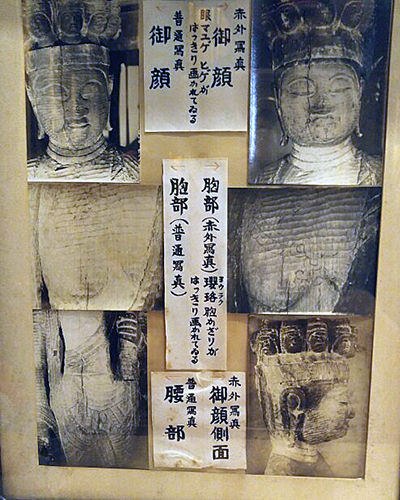 赤外寫真
御顔
眼マユゲヒゲが
はっきり画かれてゐる
普通寫真
御顔
胸部(赤外寫真)
瓔珞
ヨウラク
胸かざりが
はっきり画かれてゐる
胸部(普通寫真)
赤外寫真
御顔側面
普通寫真
腰部